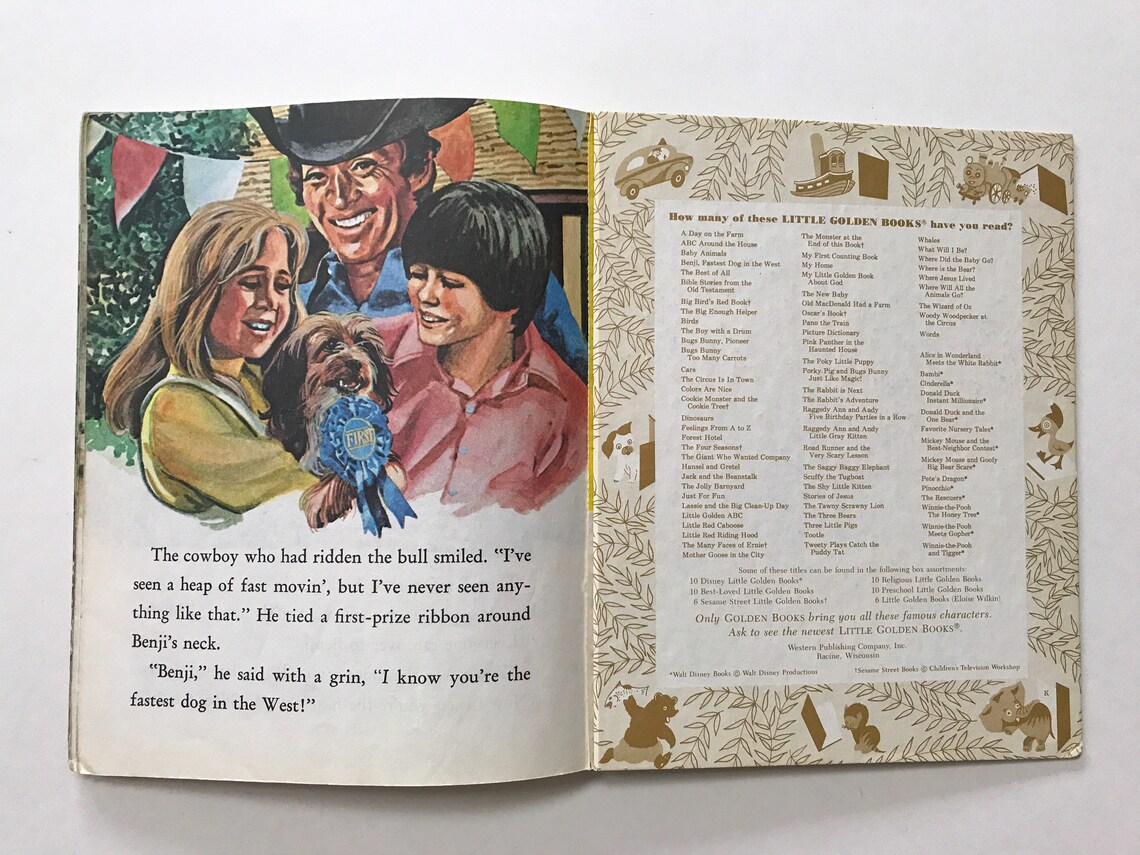 FIRST
The cowboy who had ridden the bull smiled. “I’ve
seen a heap of fast movin’, but I’ve never seen any-
thing like that.” He tied a first-prize ribbon around
Benji’s neck.
“Benji,” he said with a grin, “I know you’re the
fastest dog in the West!”
How many of these LITTLE GOLDEN BOOKS® have you read?
A Day on the Farm
ABC Around the House
Baby Animals
Benji, Fastest Dog in the West
The Best of All
Bible Stories from the
Old Testament
Big Bird's Red Book†
The Big Enough Helper
Birds
The Boy with a Drum
Bugs Bunny, Pioneer
Bugs Bunny
Too Many Carrots
Cars
The Circus Is In Town
Colors Are Nice
Cookie Monster and the
Cookie Tree†
Dinosaurs
Feelings From A to Z
Forest Hotel
The Four Seasons†
The Giant Who Wanted Company
Hansel and Gretel
Jack and the Beanstalk
The Jolly Barnyard
Just For Fun
Lassie and the Big Clean-Up Day
Little Golden ABC
Little Red Caboose
Little Red Riding Hood
The Many Faces of Ernie†
Mother Goose in the City
The Monster at the
End of this Book†
My First Counting Book
My Home
My Little Golden Book
About God
The New Baby
Old MacDonald Had a Farm
Oscar's Book†
Pano the Train
Picture Dictionary
Pink Panther in the
Haunted House
The Poky Little Puppy
Porky Pig and Bugs Bunny
Just Like Magic!
The Rabbit is Next
The Rabbit's Adventure
Raggedy Ann and Andy
Five Birthday Parties in a Row
Raggedy Ann and Andy
Little Gray Kitten
Road Runner and the
Very Scary Lesson
The Saggy Baggy Elephant
Scuffy the Tugboat
The Shy Little Kitten
Stories of Jesus
The Tawny Scrawny Lion
The Three Bears
Three Little Pigs
Tootle
Tweety Plays Catch the
Puddy Tat
Whales
What Will I Be?
Where Did the Baby Go?
Where is the Bear?
Where Jesus Lived
Where Will All the
Animals Go?
The Wizard of Oz
Woody Woodpecker at
the Circus
Words
Alice in Wonderland
Meets the White Rabbit*
Bambi*
Cinderella*
Donald Duck
Instant Millionaire*
Donald Duck and the
One Bear*
Favorite Nursery Tales*
Mickey Mouse and the
Best-Neighbor Contest*
Mickey Mouse and Goofy
Big Bear Scare*
Pete's Dragon*
Pinocchio*
The Rescuers*
Winnie-the-Pooh
The Honey Tree*
Winnie-the-Pooh
Meets Gopher*
Winnie-the-Pooh
and Tigger*
Some of these titles can be found in the following box assortments:
10 Disney Little Golden Books*
10 Best-Loved Little Golden Books
6 Sesame Street Little Golden Books†
10 Religious Little Golden Books
10 Preschool Little Golden Books
6 Little Golden Books (Eloise Wilkin)
Only GOLDEN BOOKS bring you all these famous characters.
Ask to see the newest LITTLE GOLDEN BOOKS®.
Western Publishing Company, Inc.
Racine, Wisconsin
*Walt Disney Books © Walt Disney Productions
†Sesame Street Books © Children's Television Workshop
K